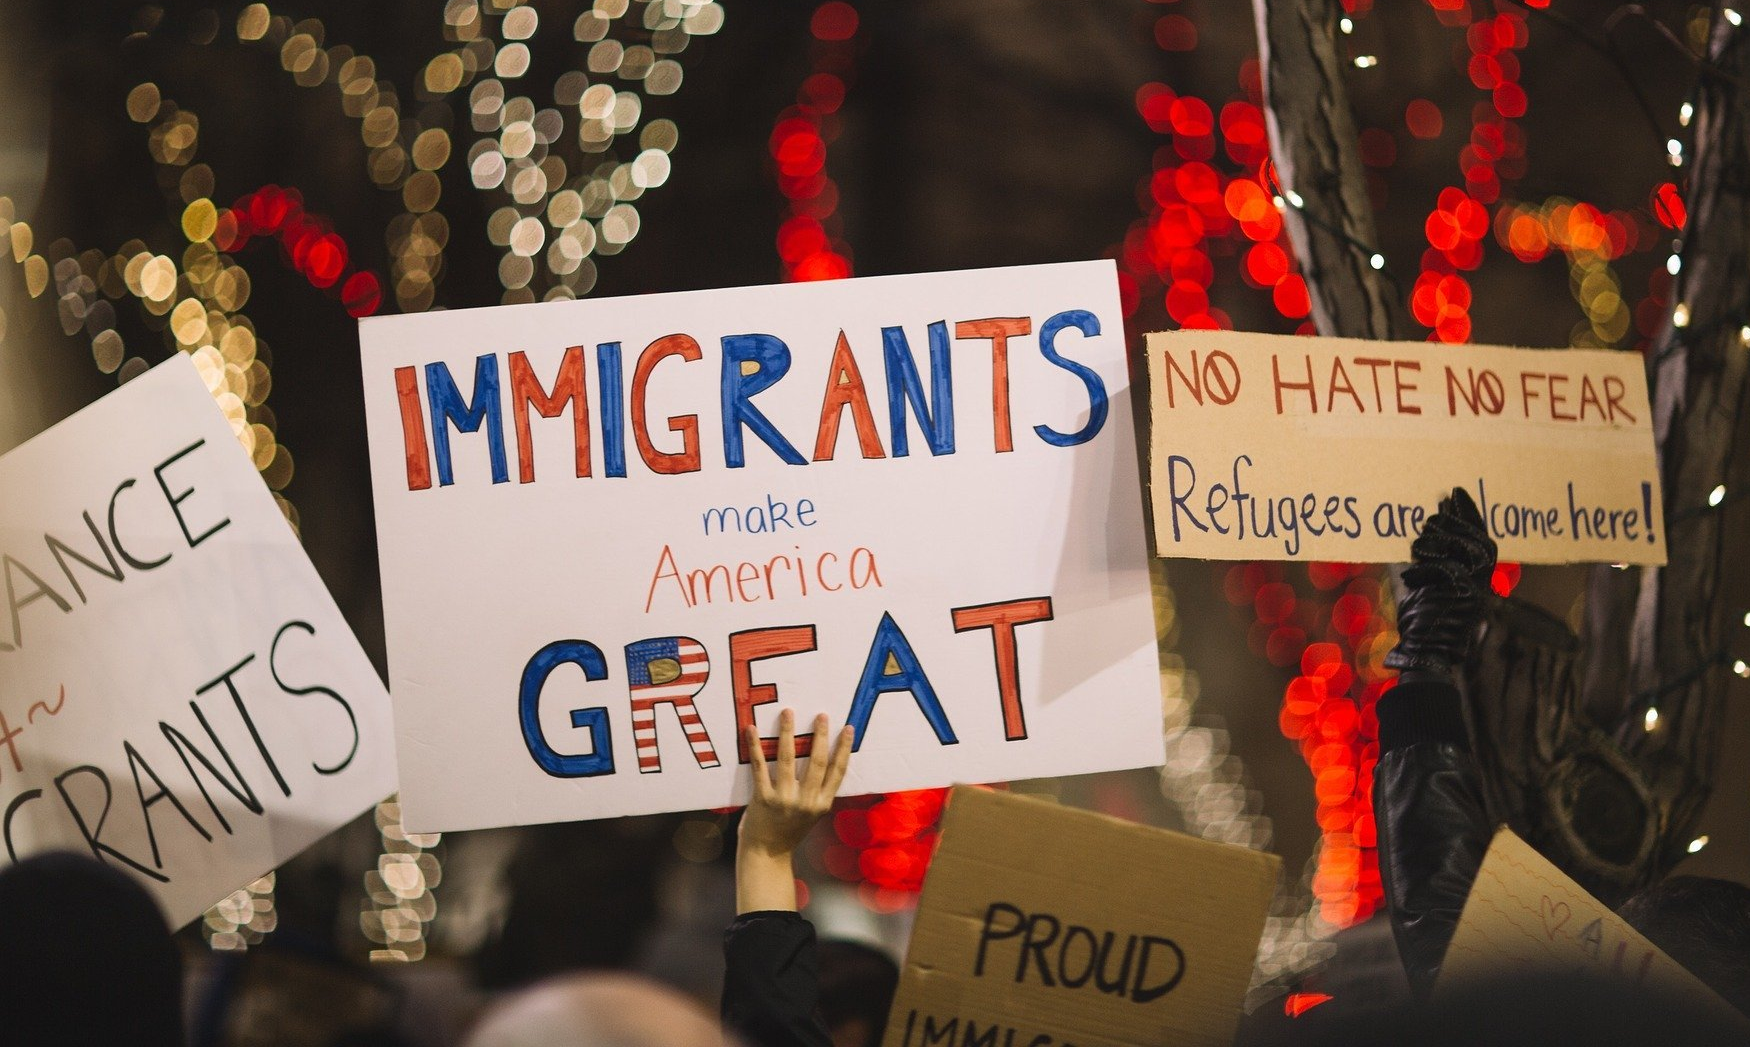 ANCE
GRANTS
IMMIGRANTS
make
America
GREAT
NO HATE NO FEAR
Refugees are lcome here!
PROUD
IMMIG